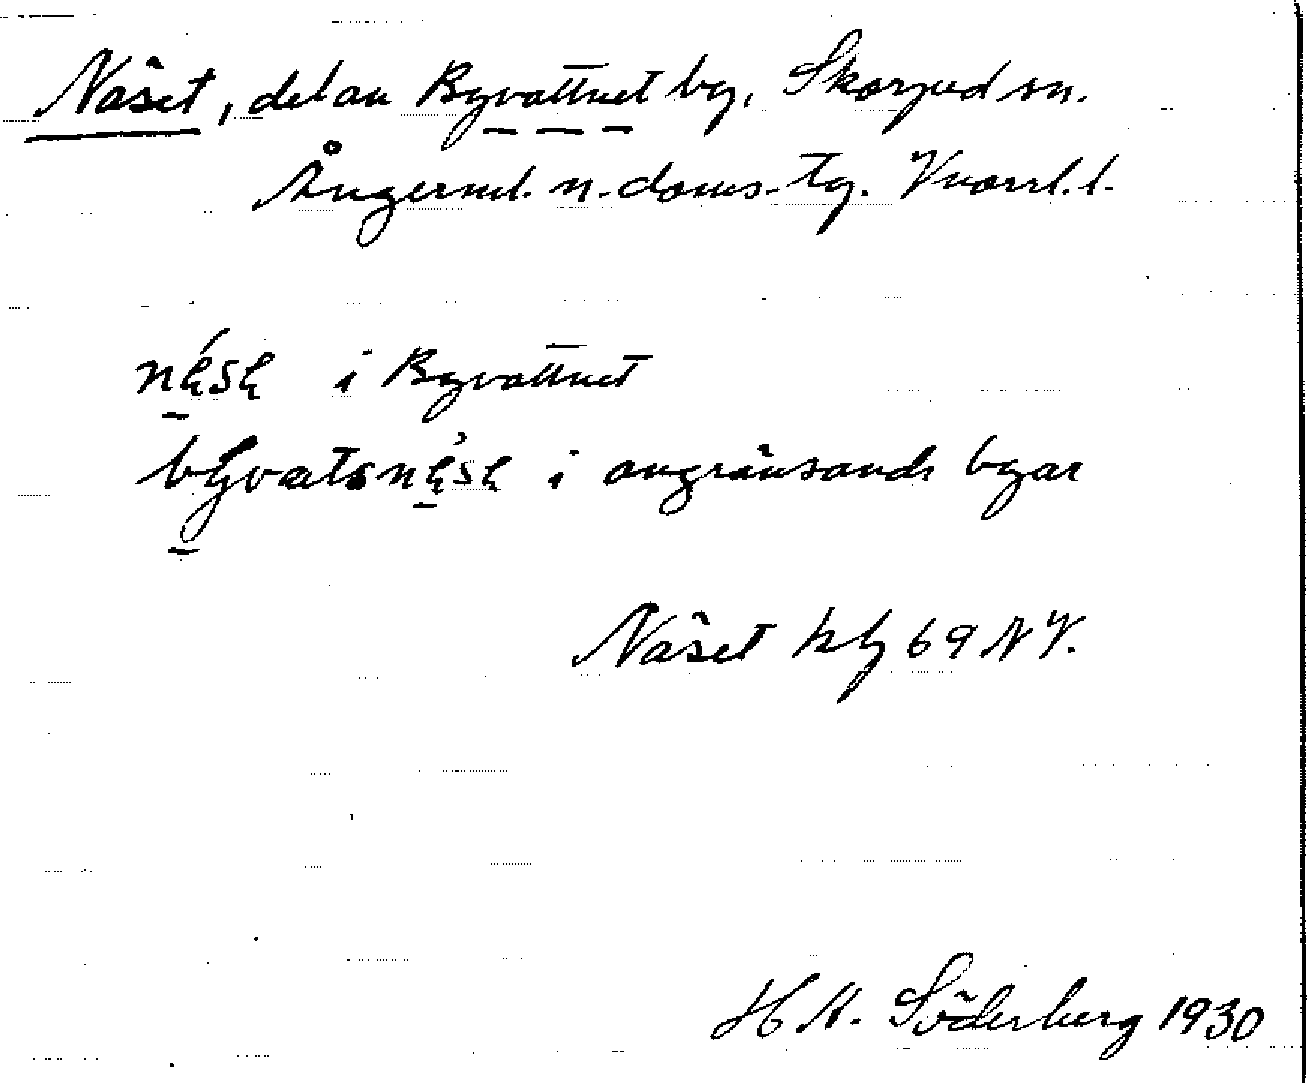 Näset, del av Byvattnet by, Skorped sn.
Ångerml. n. doms. tg. Vnorrl. l.
i Byvattnet
i angränsande byar
Näset kbl 69 NV.
H. Söderberg 1930